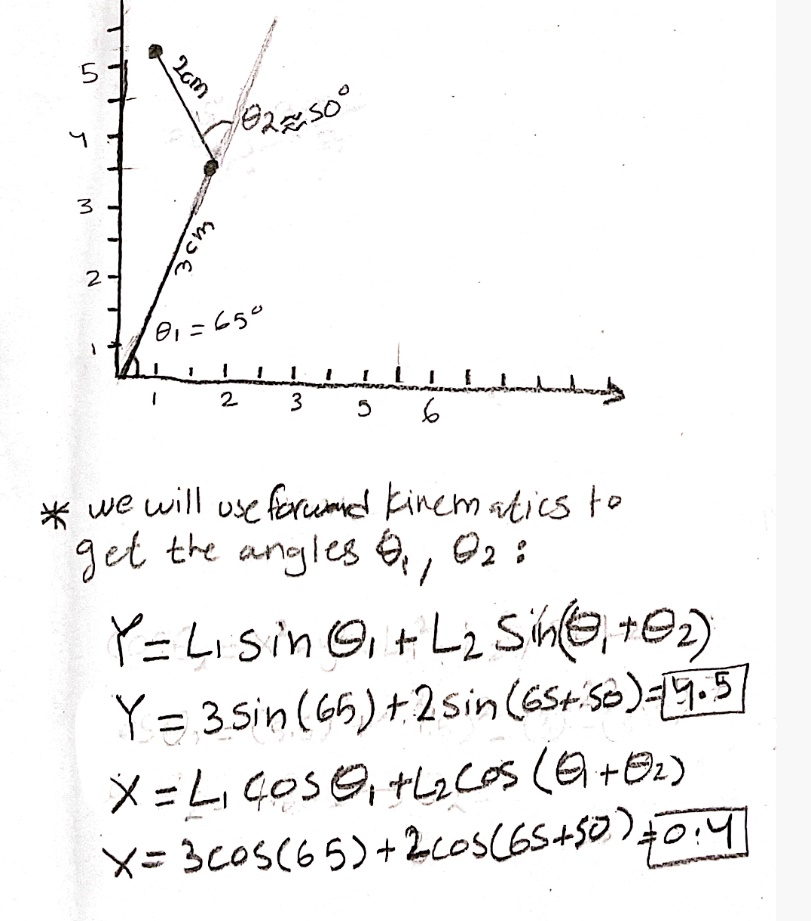 5
2cm
θ2≈50°
4
3
3cm
2
θ1 = 65°
1
1 2 3 5 6
* we will use forward kinematics to
get the angles θ1, θ2 :
Y = L1 sin θ1 + L2 Sin(θ1 + θ2)
Y = 3 sin(65) + 2 sin(65+50) = 4.5
X = L1 cos θ1 + L2 cos (θ1 + θ2)
X = 3cos(65) + 2cos(65+50) = 0.4